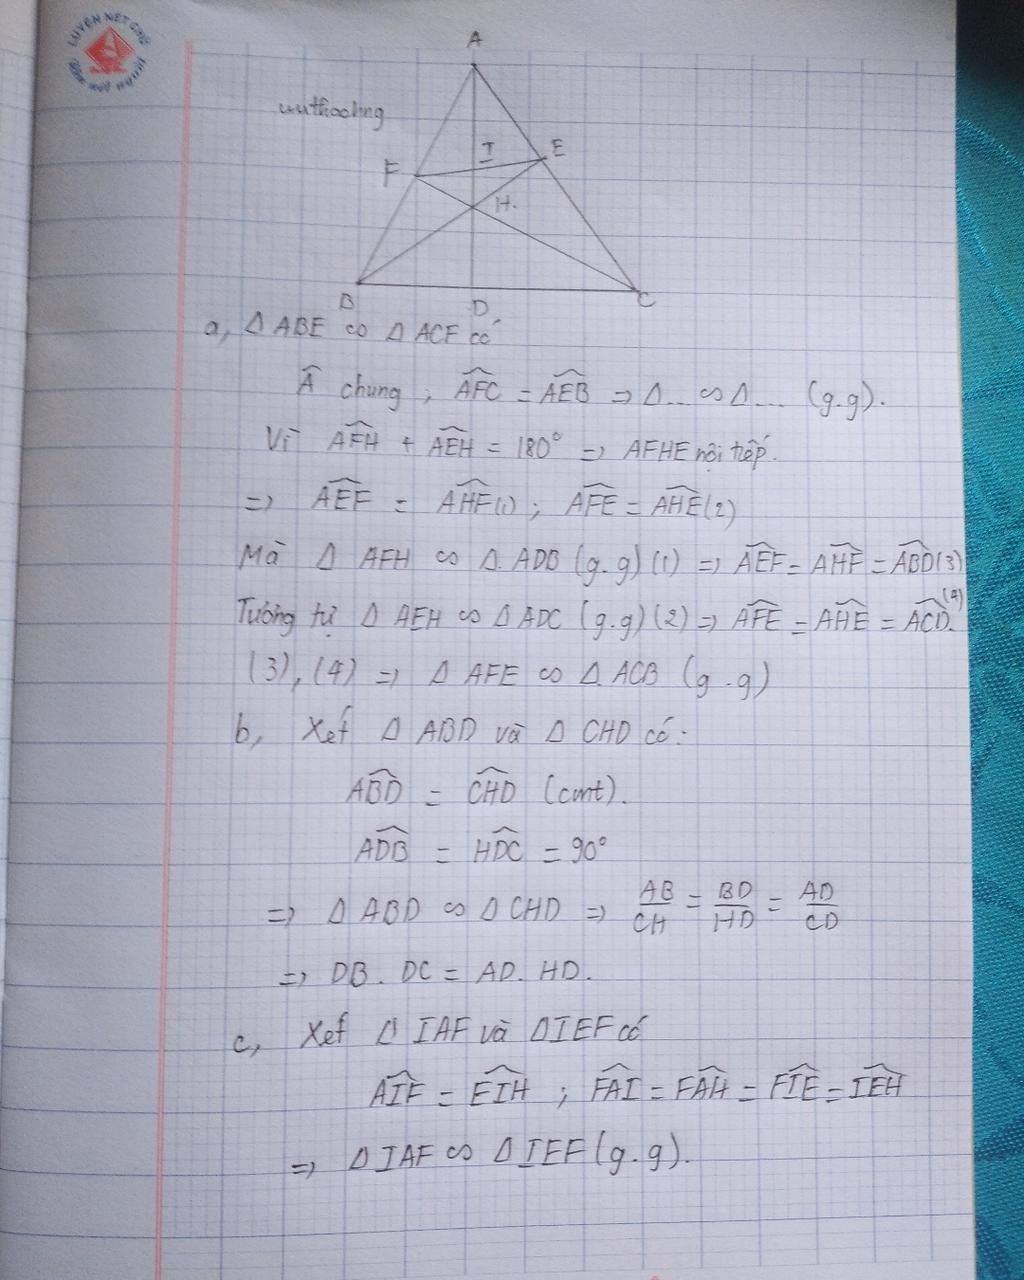 LUYỆN NÉT CHỮ
A
wuthaoling
F
I
E
H.
B
D
C
a, Δ ABE ∽ Δ ACF có
Â chung ; \widehat{AFC} = \widehat{AEB} => Δ... ∽ Δ.... (g.g).
Vì \widehat{AFH} + \widehat{AEH} = 180° => AFHE nội tiếp.
=> \widehat{AEF} = \widehat{AHF} (1) ; \widehat{AFE} = \widehat{AHE} (2)
Mà Δ AFH ∽ Δ ADB (g.g) (1) => \widehat{AEF} = \widehat{AHF} = \widehat{ABD} (3)
Tương tự Δ AEH ∽ Δ ADC (g.g) (2) => \widehat{AFE} = \widehat{AHE} = \widehat{ACD}. (4)
(3), (4) => Δ AFE ∽ Δ ACB (g.g)
b, Xét Δ ABD và Δ CHD có :
\widehat{ABD} = \widehat{CHD} (cmt).
\widehat{ADB} = \widehat{HDC} = 90°
=> Δ ABD ∽ Δ CHD => AB/CH = BD/HD = AD/CD
=> DB . DC = AD. HD.
c, Xét Δ IAF và Δ IEF có
\widehat{AIF} = \widehat{EIH} ; \widehat{FAI} = \widehat{FAH} = \widehat{FIE} = \widehat{IEH}
=> Δ IAF ∽ Δ IEF (g.g).